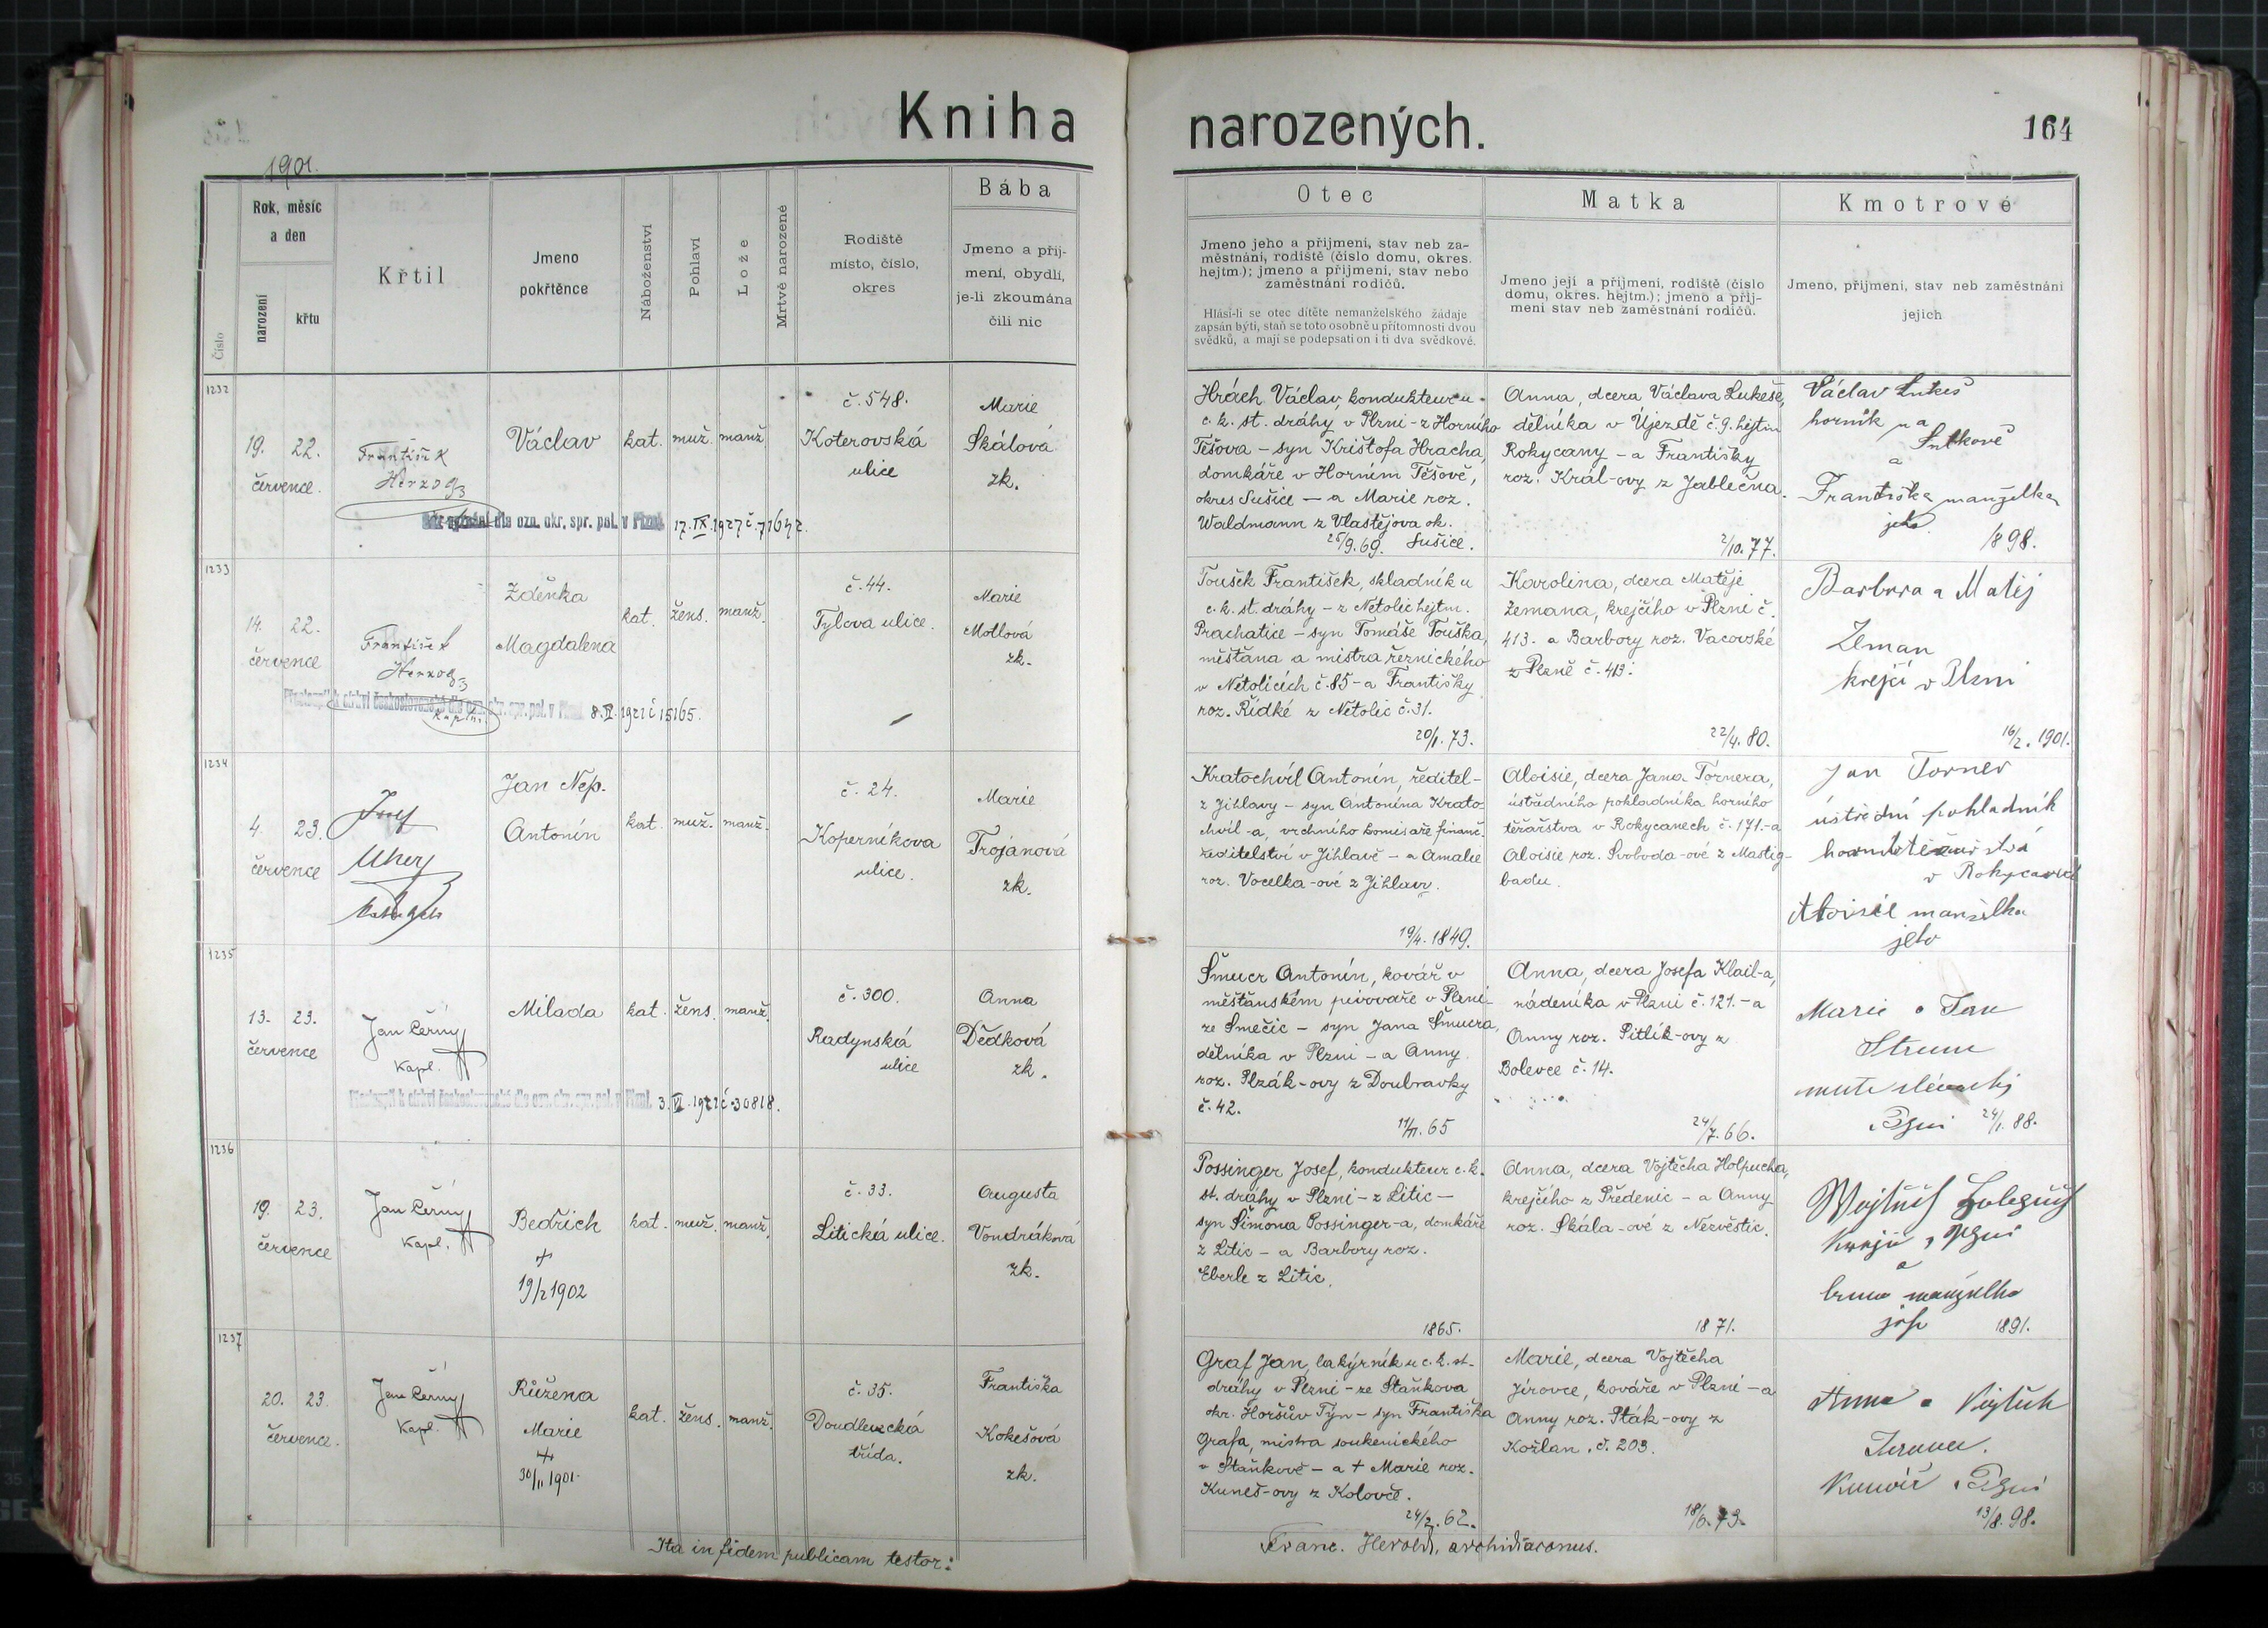 Kniha narozených.
164
1901.
Číslo
Rok, měsíc
a den
narození
křtu
Křtil
Jmeno
pokřtěnce
Náboženství
Pohlaví
Lože
Mrtvě narozené
Rodiště
místo, číslo,
okres
Bába
Jmeno a přij-
mení, obydlí,
je-li zkoumána
čili nic
Otec
Jmeno jeho a přijmení, stav neb za-
městnání, rodiště (číslo domu, okres.
hejtm.); jmeno a přijmení, stav nebo
zaměstnání rodičů.
Hlásí-li se otec dítěte nemanželského žádaje
zapsán býti, staň se toto osobně u přítomnosti dvou
svědků, a mají se podepsati on i ti dva svědkové.
Matka
Jmeno její a přijmení, rodiště (číslo
domu, okres. hejtm.); jmeno a přij-
mení stav neb zaměstnání rodičů.
Kmotrové
Jmeno, přijmení, stav neb zaměstnání
jejich
1232
19. 22.
července.
František
Herzog
Václav
kat. muž. manž.
č. 548.
Koterovská
ulice
Marie
Skálová
zk.
dle ozn. okr. spr. pol. v Plzni 17. IX. 1927 č. 71642.
Hrách Václav, kondukteur u
c. k. st. dráhy v Plzni - z Horního
Těšova - syn Krištofa Hracha,
domkáře v Horním Těšově,
okres Sušice - a Marie roz.
Waldmann z Vlastějova ok.
Sušice.
26/9. 69.
Anna, dcera Václava Lukeše,
dělníka v Újezdě č. 9. hejtm.
Rokycany - a Františky
roz. Král-ovy z Jablečna.
2/10. 77.
Václav Lukeš
horník
a
Františka manželka
jeho
1898.
1233
14. 22.
července
František
Herzog
kaplan
Zdeňka
Magdalena
kat. žens. manž.
č. 44.
Tylova ulice.
Marie
Motlová
zk.
Přistoupil k církvi československé dle ozn. okr. spr. pol. v Plzni 8. II. 1921 č 15165.
Toušek František, skladník u
c. k. st. dráhy - z Netolic hejtm.
Prachatice - syn Tomáše Touška,
měšťana a mistra řeznického
v Netolicích č. 85 - a Františky
roz. Řídké z Netolic č. 31.
20/1. 73.
Karolina, dcera Matěje
Zemana, krejčího v Plzni č.
413. a Barbory roz. Vacovské
z Plzně č. 413.
22/4. 80.
Barbora a Matěj
Zeman
krejčí v Plzni
16/2. 1901.
1234
4. 23.
července
Josef
Jan Nep.
Antonín
kat. muž. manž.
č. 24.
Koperníkova
ulice.
Marie
Trojanová
zk.
Kratochvíl Antonín, ředitel -
z Jihlavy - syn Antonína Krato-
chvíl-a, vrchního komisaře finanč.
ředitelství v Jihlavě - a Amalie
roz. Vocelka-ové z Jihlavy.
19/4. 1849.
Aloisie, dcera Jana Tornera,
ústředního pokladníka horního
těžařstva v Rokycanech č. 171. - a
Aloisie roz. Svoboda-ové z Mastig-
badu.
Jan Torner
ústřední pokladník
v Rokycanech
Aloisie manželka
jeho
1235
13. 23.
července
Jan Černý
Kapl.
Milada
kat. žens. manž.
č. 300.
Radynská
ulice
Anna
Dědková
zk.
Přistoupil k církvi československé dle ozn. okr. spr. pol. v Plzni 3. VI. 1921 č. 30818.
Šmucr Antonín, kovář v
měšťanském pivovaře v Plzni -
ze Smečic - syn Jana Šmucra,
dělníka v Plzni - a Anny
roz. Plzák-ovy z Doubravky
č. 42.
11/11. 65
Anna, dcera Josefa Klail-a,
nádeníka v Plzni č. 121. - a
Anny roz. Pitlík-ovy z
Bolevce č. 14.
24/7. 66.
Marie a Jan
24/1. 88.
1236
19. 23.
července
Jan Černý
Kapl.
Bedřich
+
19/2 1902
kat. muž. manž.
č. 33.
Litická ulice.
Augusta
Vondráková
zk.
Possinger Josef, kondukteur c. k.
st. dráhy v Plzni - z Litic -
syn Šimona Possinger-a, domkáře
z Litic - a Barbory roz.
Eberle z Litic.
1865.
Anna, dcera Vojtěcha Holpucha,
krejčího z Předenic - a Anny
roz. Skála-ové z Nezvěstic.
1871.
a
manželka
1891.
1237
20. 23.
července.
Jan Černý
Kapl.
Růžena
Marie
+
30/11 1901.
kat. žens. manž.
č. 35.
Doudlevecká
třída.
Františka
Kokešová
zk.
Graf Jan, lakýrník u c. k. st.
dráhy v Plzni - ze Staňkova
okr. Horšův Týn - syn Františka
Grafa, mistra soukenického
v Staňkově - a + Marie roz.
Kuneš-ovy z Kolovče.
24/2. 62.
Marie, dcera Vojtěcha
Jírovce, kováře v Plzni - a
Anny roz. Pták-ovy z
Kožlan č. 203.
18/6. 73.
Anna a Vojtěch
13/8. 98.
Ita in fidem publicam testor:
Franc. Herold, archidiaconus.